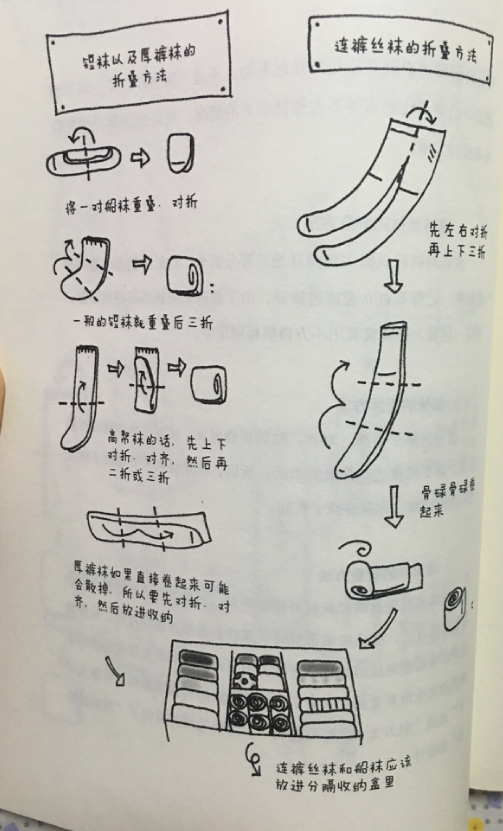 短袜以及厚裤袜的
折叠方法
将一对船袜重叠．对折
一般的短袜就重叠后三折
高帮袜的话，先上下
对折．对齐，然后再
二折或三折
厚裤袜如果直接卷起来可能
会散掉，所以要先对折．对
齐，然后放进收纳
连裤丝袜的折叠方法
先左右对折
再上下三折
骨碌骨碌卷
起来
连裤丝袜和船袜应该
放进分隔收纳盒里